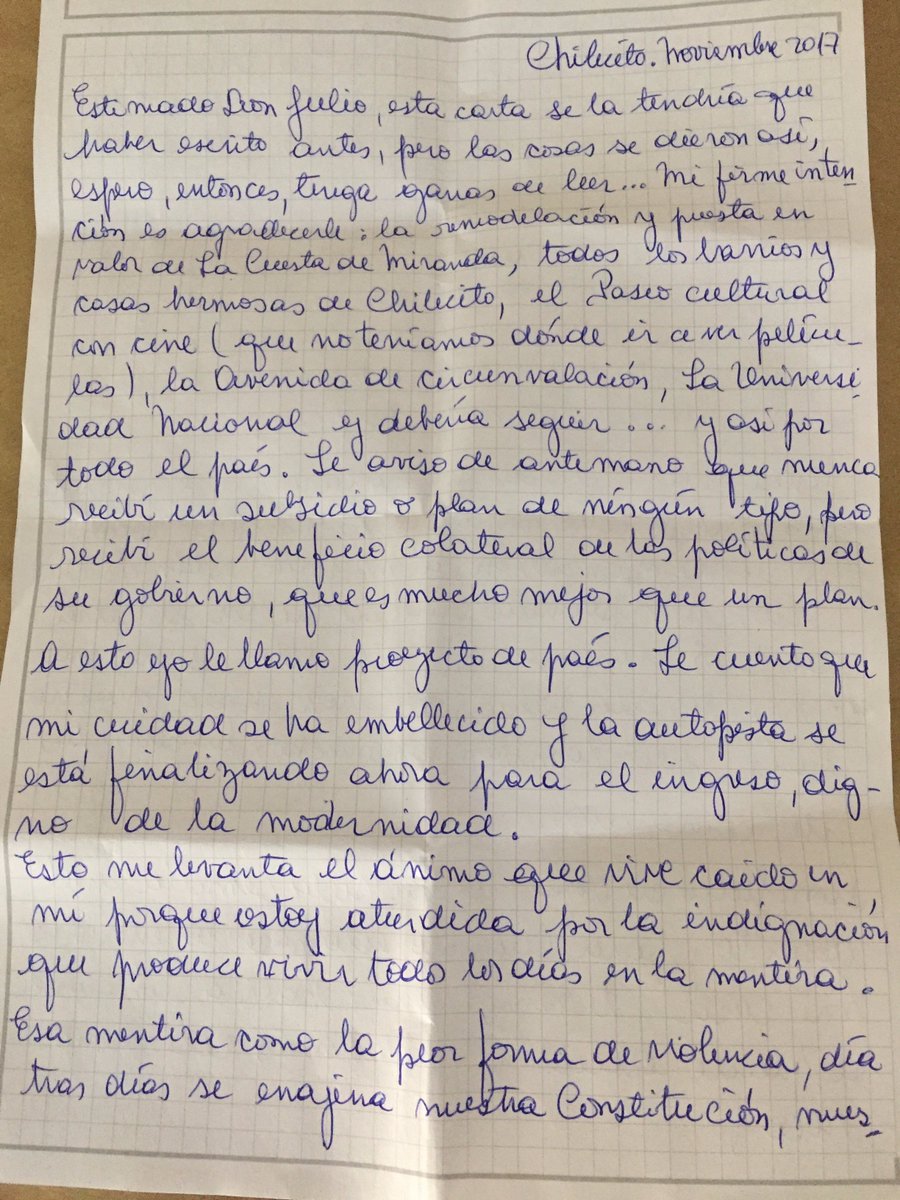 Chilecito. Noviembre 2017
Estimado Don Julio, esta carta se la tendría que
haber escrito antes, pero las cosas se dieron así,
espero, entonces, tenga ganas de leer... Mi firme inten-
ción es agradecerle: la remodelación y puesta en
valor de La Cuesta de Miranda, todos los barrios y
casas hermosas de Chilecito, el Paseo cultural
con cine (que no teníamos dónde ir a ver pelícu-
las), la Avenida de circunvalación, La Universi
dad Nacional y debería seguir... y así por
todo el país. Le aviso de antemano que nunca
recibí un subsidio o plan de ningún tipo, pero
recibí el beneficio colateral de las políticas de
su gobierno, que es mucho mejor que un plan.
A esto yo le llamo proyecto de país. Le cuento que
mi cuidad se ha embellecido y la autopista se
está finalizando ahora para el ingreso, dig-
no de la modernidad.
Esto me levanta el ánimo que vive caído en
mí porque estoy aturdida por la indignación
que produce vivir todo los días en la mentira.
Esa mentira como la peor forma de violencia, día
tras días se enajena nuestra Constitución, nues-